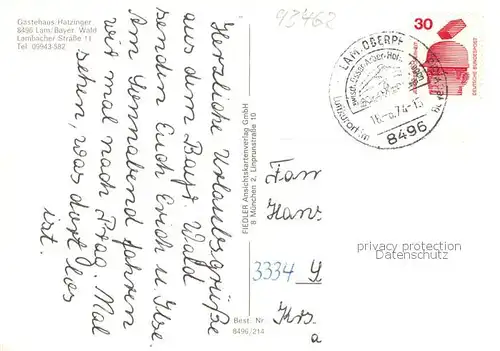 Gästehaus Hatzinger
8496 Lam/Bayer. Wald
Lambacher Straße 11
Tel. 09943-582
Herzliche Urlaubsgrüße
aus dem Bayr. Wald
senden Euch Erich u. Ilse.
Am Sonnabend fahren
wir mal nach Prag. Mal
sehen, was dort los
ist.
FIEDLER Ansichtskartenverlag GmbH
8 München 2, Linprunstraße 10
Best. Nr
8496/214
93462
30
DEUTSCHE BUNDESPOST
LAM, OBERPF
Luftkurort im
74-15
8496
Fam
Hans
3334
Krs.
privacy protection
Datenschutz